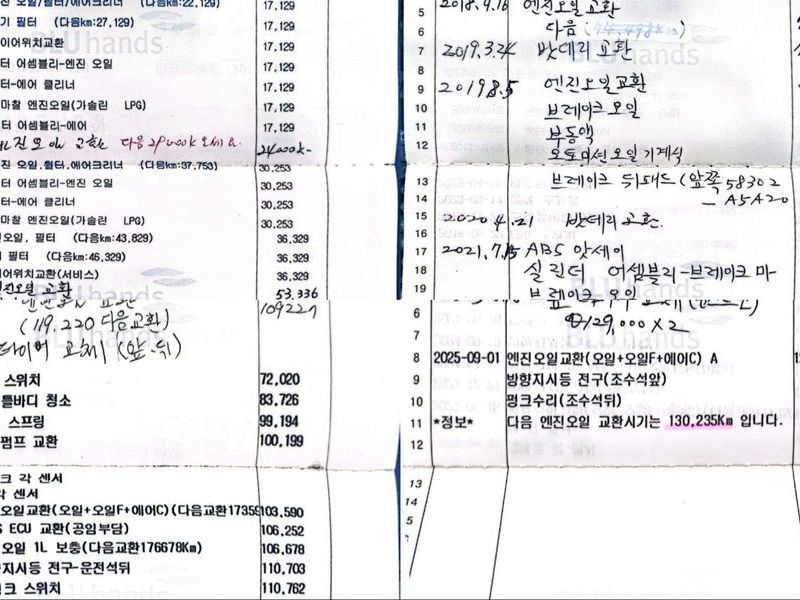 진 오일/필터/에어크리너 (다음km:22,129) 17,129
기 필터 (다음km:27,129) 17,129
이어위치교환 17,129
터 어셈블리-엔진 오일 17,129
터-에어 클리너 17,129
마찰 엔진오일(가솔린 LPG) 17,129
터 어셈블리-에어 17,129
교환 다음 24000k-
진 오일,필터,에어크리너 (다음km:37,753) 30,253
터 어셈블리-엔진 오일 30,253
터-에어 클리너 30,253
마찰 엔진오일(가솔린 LPG) 30,253
진오일, 필터 (다음km:43,829) 36,329
필터 (다음km:46,329) 36,329
이어위치교환(서비스) 36,329
엔진오일교환 53.336
109227
(119.220 다음교환)
타이어 교체 (앞.뒤)
스위치 72,020
틀바디 청소 83,726
스프링 99,194
펌프 교환 100,199
크 각 센서
각 센서
오일교환(오일+오일F+에어C)(다음교환17359 103,590
S ECU 교환(공임부담) 106,252
오일 1L 보충(다음교환176678Km) 106,678
향지시등 전구-운전석뒤 110,703
크 스위치 110,762
5 2018.9.16 엔진오일교환
6 다음
7 2019.3.24 밧데리 교환
8
9 2019 8.5 엔진오일교환
10 브레이크 오일
11 부동액
12 오토미션 오일 기계식
13 브레이크 뒤패드 (앞쪽 58302
14 - A5A20
15 2020 4.21 밧데리 교환.
16
17 2021.7.15 ABS 앗세이
18 실린더 어셈블리-브레이크 마
19 브레이크 오일
6 129,000 x 2
7
8 2025-09-01 엔진오일교환(오일+오일F+에어C) A
9 방향지시등 전구(조수석앞)
10 펑크수리(조수석뒤)
11 *정보* 다음 엔진오일 교환시기는 130,235Km 입니다.
12
13
14
5
BLUhands
BLUhands
BLUhands
BLUhands